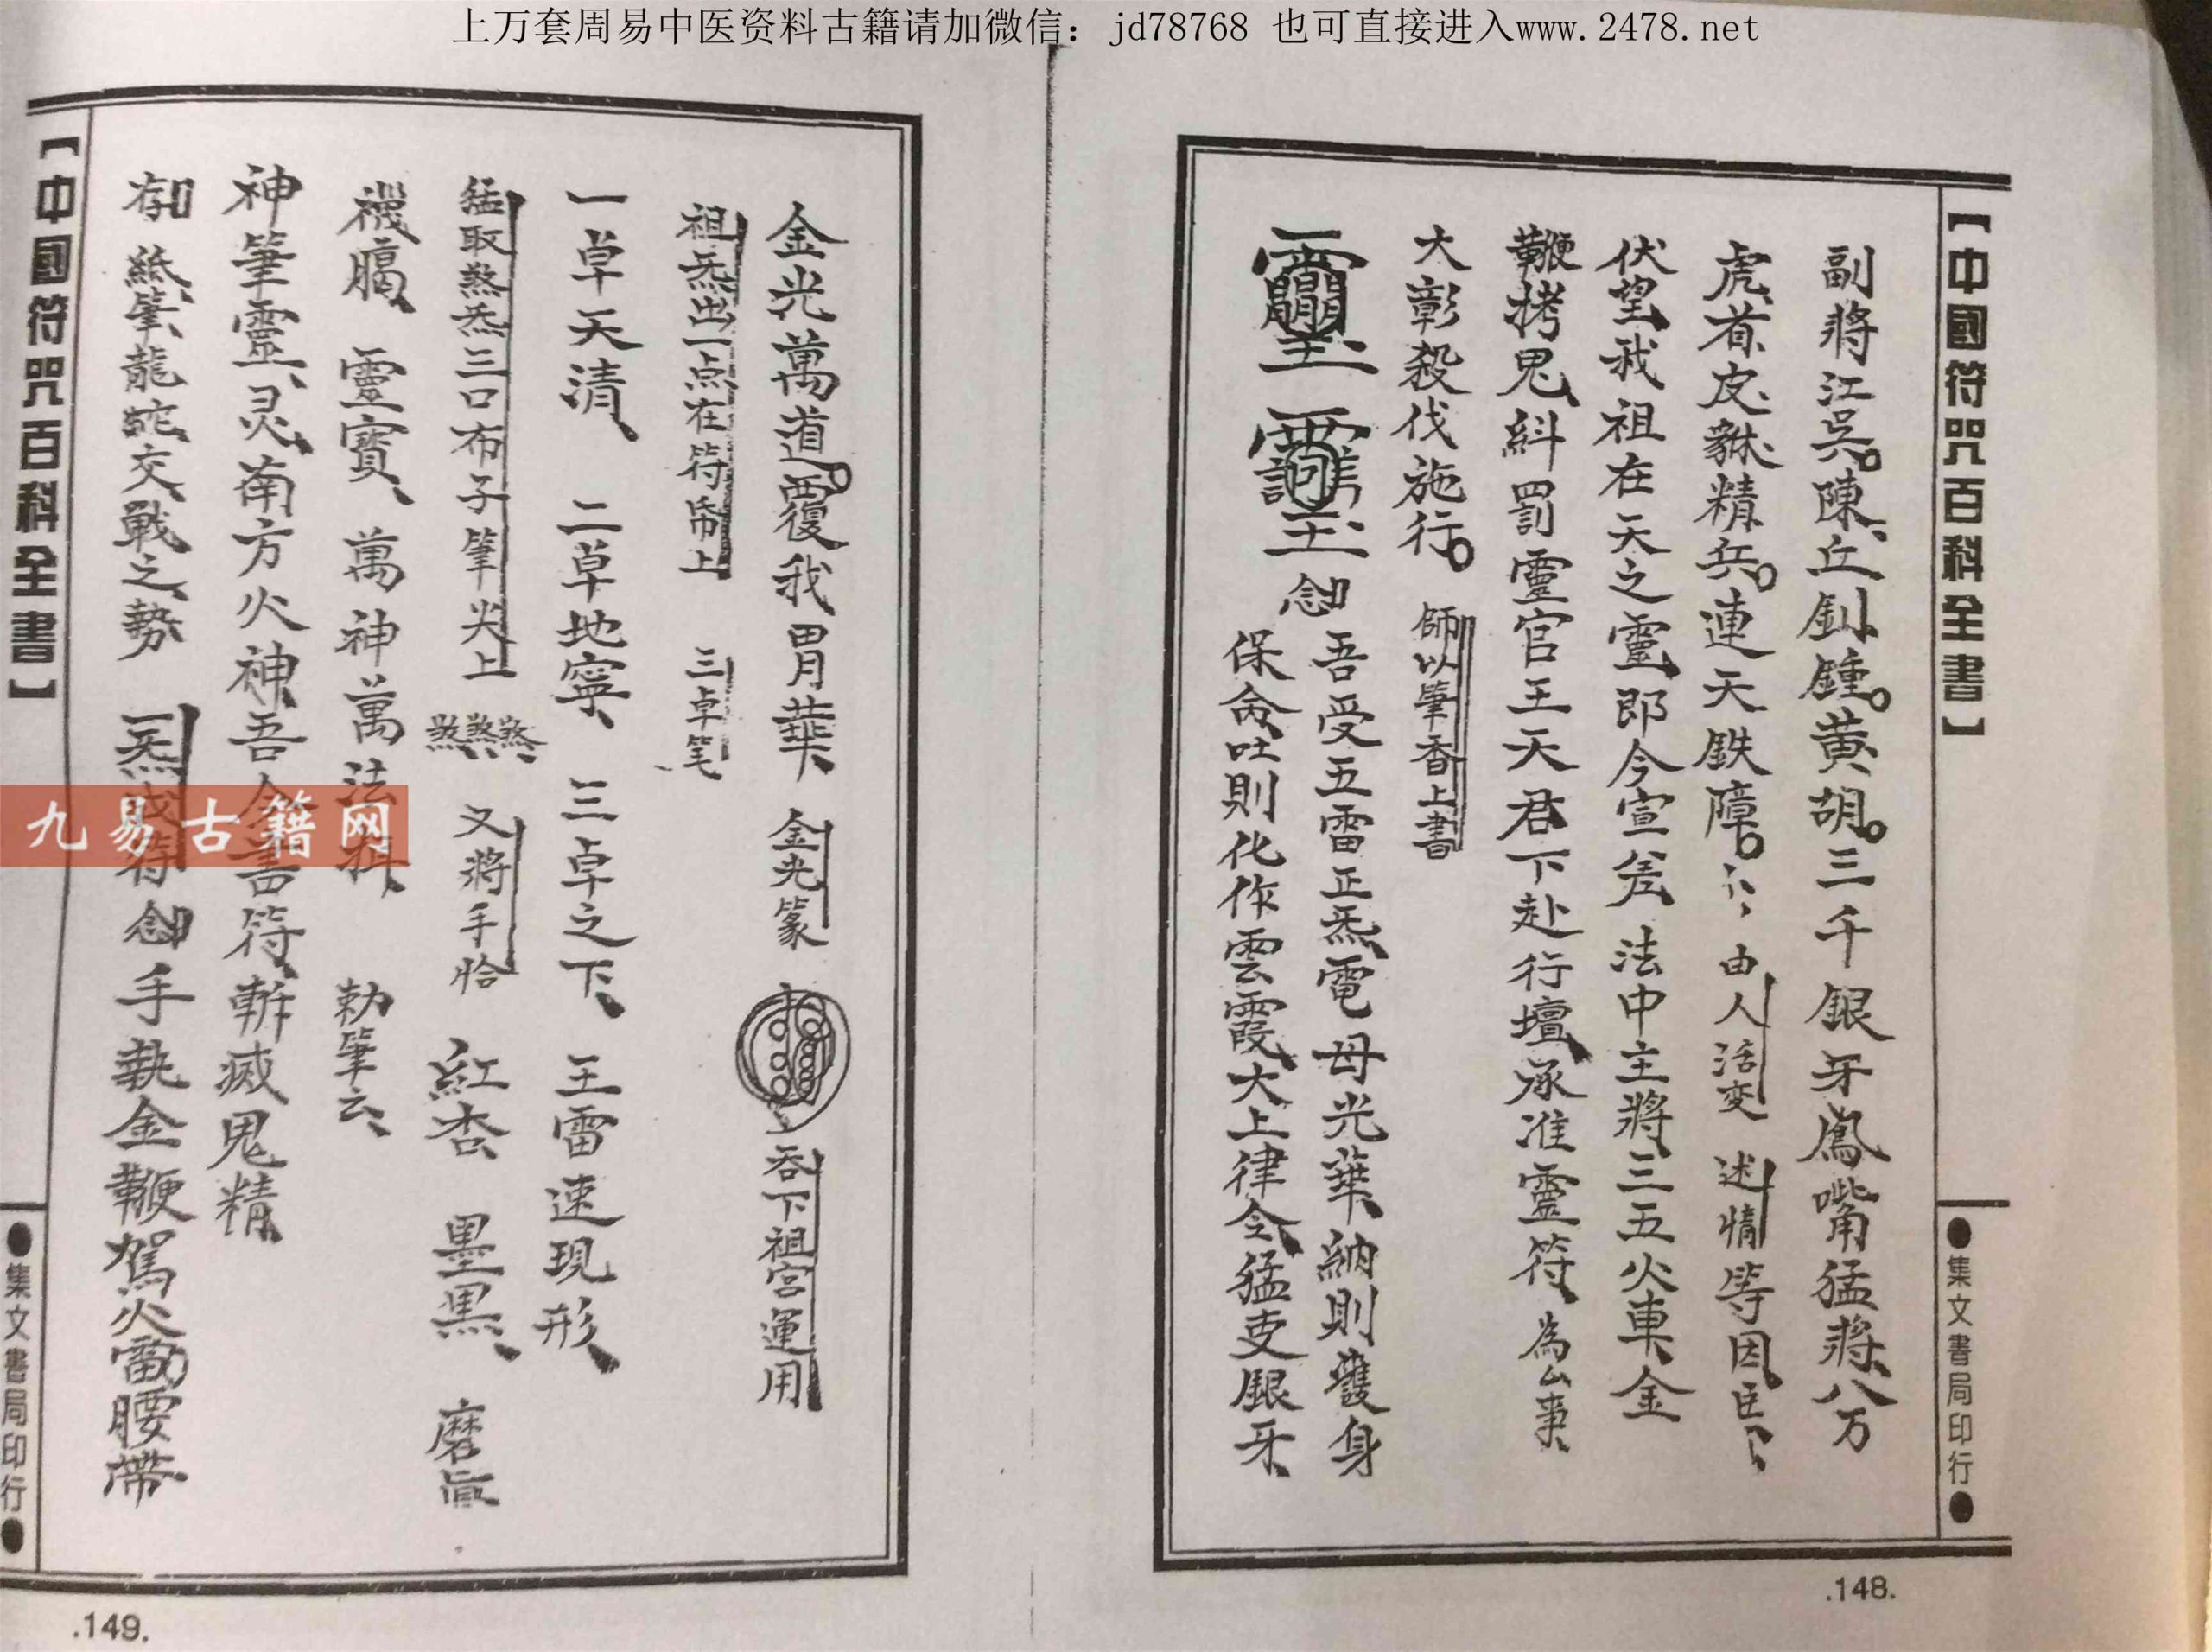 上万套周易中医资料古籍请加微信：jd78768 也可直接进入www.2478.net
【中國符咒百科全書】
●集文書局印行●
副將江吳。陳丘釗鍾。黃胡。三千銀牙鳳嘴猛將八万
虎首皮貅精兵。連天鉄障。 由人活変 述情等因臣
伏望我祖在天之靈即今宣差法中主將三五火車金
鞭拷鬼糾罰靈官王天君下赴行壇承准靈符為厶事
大彰殺伐施行。 師以筆香上書
念
吾受五雷正炁電母光華納則護身
保命吐則化作雲霞大上律令猛吏銀牙
.148.
金光萬道覆我胃華 金光篆 吞下祖宮運用
祖炁出一点在符帋上 三卓笔
一卓天清 二卓地寧 三卓之下 王雷速現形
猛取煞炁三口布子筆尖上 煞煞煞 又將手恰 紅杏 墨黑 磨
靈寶 萬神萬法 勅筆云
神筆靈灵南方火神吾今書符斬滅鬼精
存 筆龍蛇交戰之勢 一炁成符 念 手執金鞭駕火雷腰帶
【中國符咒百科全書】
●集文書局印行●
.149.
九易古籍网